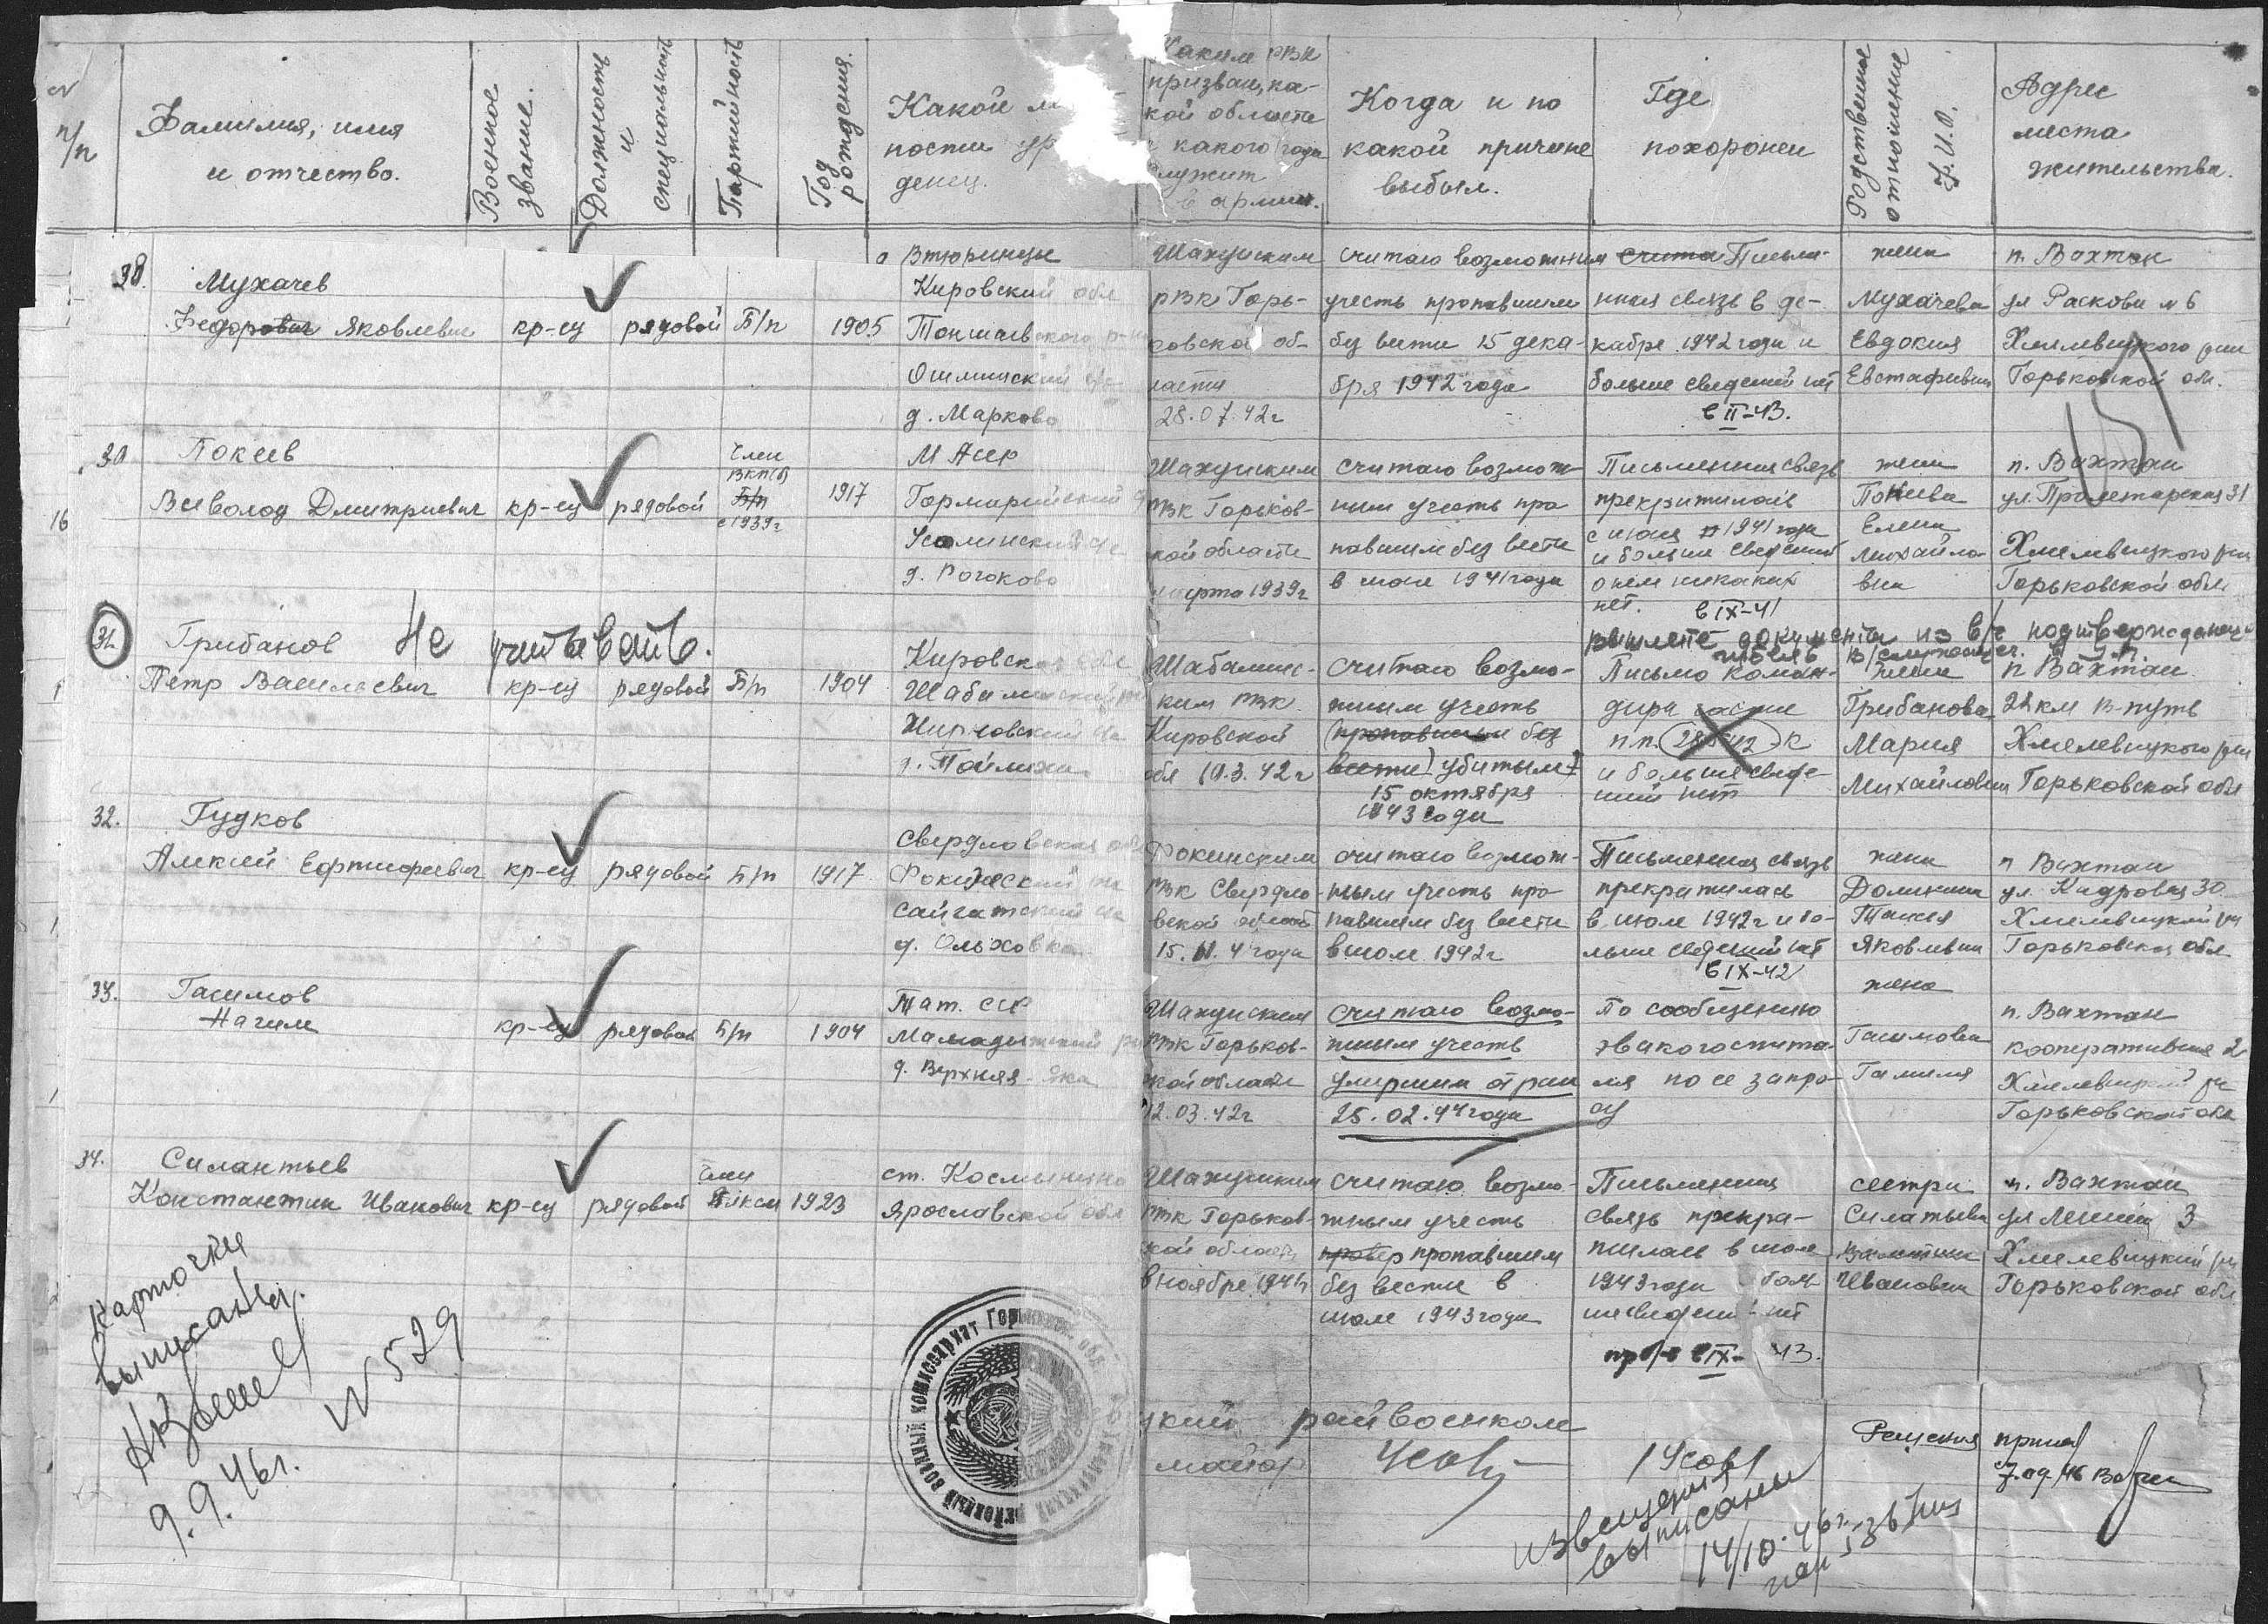 п/п
Фамилия, имя
и отчество.
Военное
звание.
Должность
и
специальность
Партийность
Год
рождения.
Какой
ности
денец.
Каким РВК
призван, ка-
кой области
какого года
служит
в армии.
Когда и по
какой причине
выбыл.
Где
похоронен
Родственное
отношение
Ф.И.О.
Адрес
места
жительства.
Мухачев
Яковлевич кр-ец рядовой Б/п 1905
Втюринцы
Кировский обл
Тоншаевского р-на
Ошминский
д. Марково
Шахунским
РВК Горь-
ковской об-
ласти
28.07.42г
считаю возможным
учесть пропавшим
без вести 15 дека-
бря 1942 года
Письмен-
ная связь в де-
кабре 1942 года и
больше сведений нет
в II-43.
жена
Мухачева
Евдокия
Евстафьевна
п. Вахтан
ул Раскова № 6
Хмелевицкого р-на
Горьковской об.
30
Покеев
Всеволод Дмитриевич кр-ец рядовой
Член
ВКП(б)
Б/п
с 1939г
1917
М Асср
Гормарийский
д. Рогоково
Шахунским
РВК Горьков-
кой области
марта 1939г
считаю возмож-
ным учесть про
павшим без вести
в мае 1941 года
Письменная связь
прекратилась
с июня 1941 года
и больше сведений
о нем никаких
нет. в IX-41
жена
Покеева
Елена
Михайло-
вна
п. Вахтан
ул. Пролетарская 31
Хмелевицкого р-на
Горьковской обл
16
31.
Грибанов Не учитывать.
Петр Васильевич кр-ец рядовой Б/п 1904
Кировская обл
Шабалинским
РВК
Кировской
обл 10.3.42г
считаю возмо-
жным учесть
(пропавшим без
вести) убитым
15 октября
1943 года
вышлете документы из в/ч подтверждающ
гибель
Письмо коман-
дира части
п.п. 28542-К
и больше сведе-
ний нет
жена
Грибанова
Мария
Михайловна
п Вахтан
22 км В-путь
Хмелевицкого р-на
Горьковской обл
32.
Гудков
Алексей Ефтифеевич кр-ец рядовой Б/п 1917
Свердловская обл
Фокинский
Сайгатский
д. Ольховка
Фокинским
РВК Свердло-
вской област
считаю возмож-
ным учесть про-
павшим без вести
в июле 1942г
Письменная связь
прекратилась
в июле 1942г и бо-
льше сведений нет
в IX-42
жена
Таисия
Яковлевна
п Вахтан
ул. Кадровая 30
Хмелевицкий р-н
Горьковская обл
33.
Гасимов
Нагим
кр-ец рядовой Б/п 1904
Тат. сср
Мамадышский
д. Верхняя
Шахунским
РВК Горьков-
ской области
12.03.42г
считаю возмо-
жным учесть
умершим от ран
25.02.44 года
По сообщению
эвакогоспита
ля по ее запро-
су
жена
Гасимова
п. Вахтан
кооперативная 2
Хмелевицкий р-н
Горьковской обл
34.
Силантьев
Константин Иванович кр-ец рядовой
член
влксм 1923
ст. Космынино
Ярославской обл
Шахунским
РВК Горьков-
ской области
в ноябре 1941г
считаю возмо-
жным учесть
пропавшим
без вести в
июле 1943 года
Письменная
связь прекра-
тилась в июле
1943 года боль-
ше сведений нет
пр/б в IX-43.
сестра
Силатьева
Валентина
Ивановна
п. Вахтан
ул Ленина 3
Хмелевицкий р-н
Горьковской обл
Карточки
выписаны.
9.9.46г.
N 529
цкий райвоенком
майор
/Усов/
извещения
выписаны
14/10.46г.